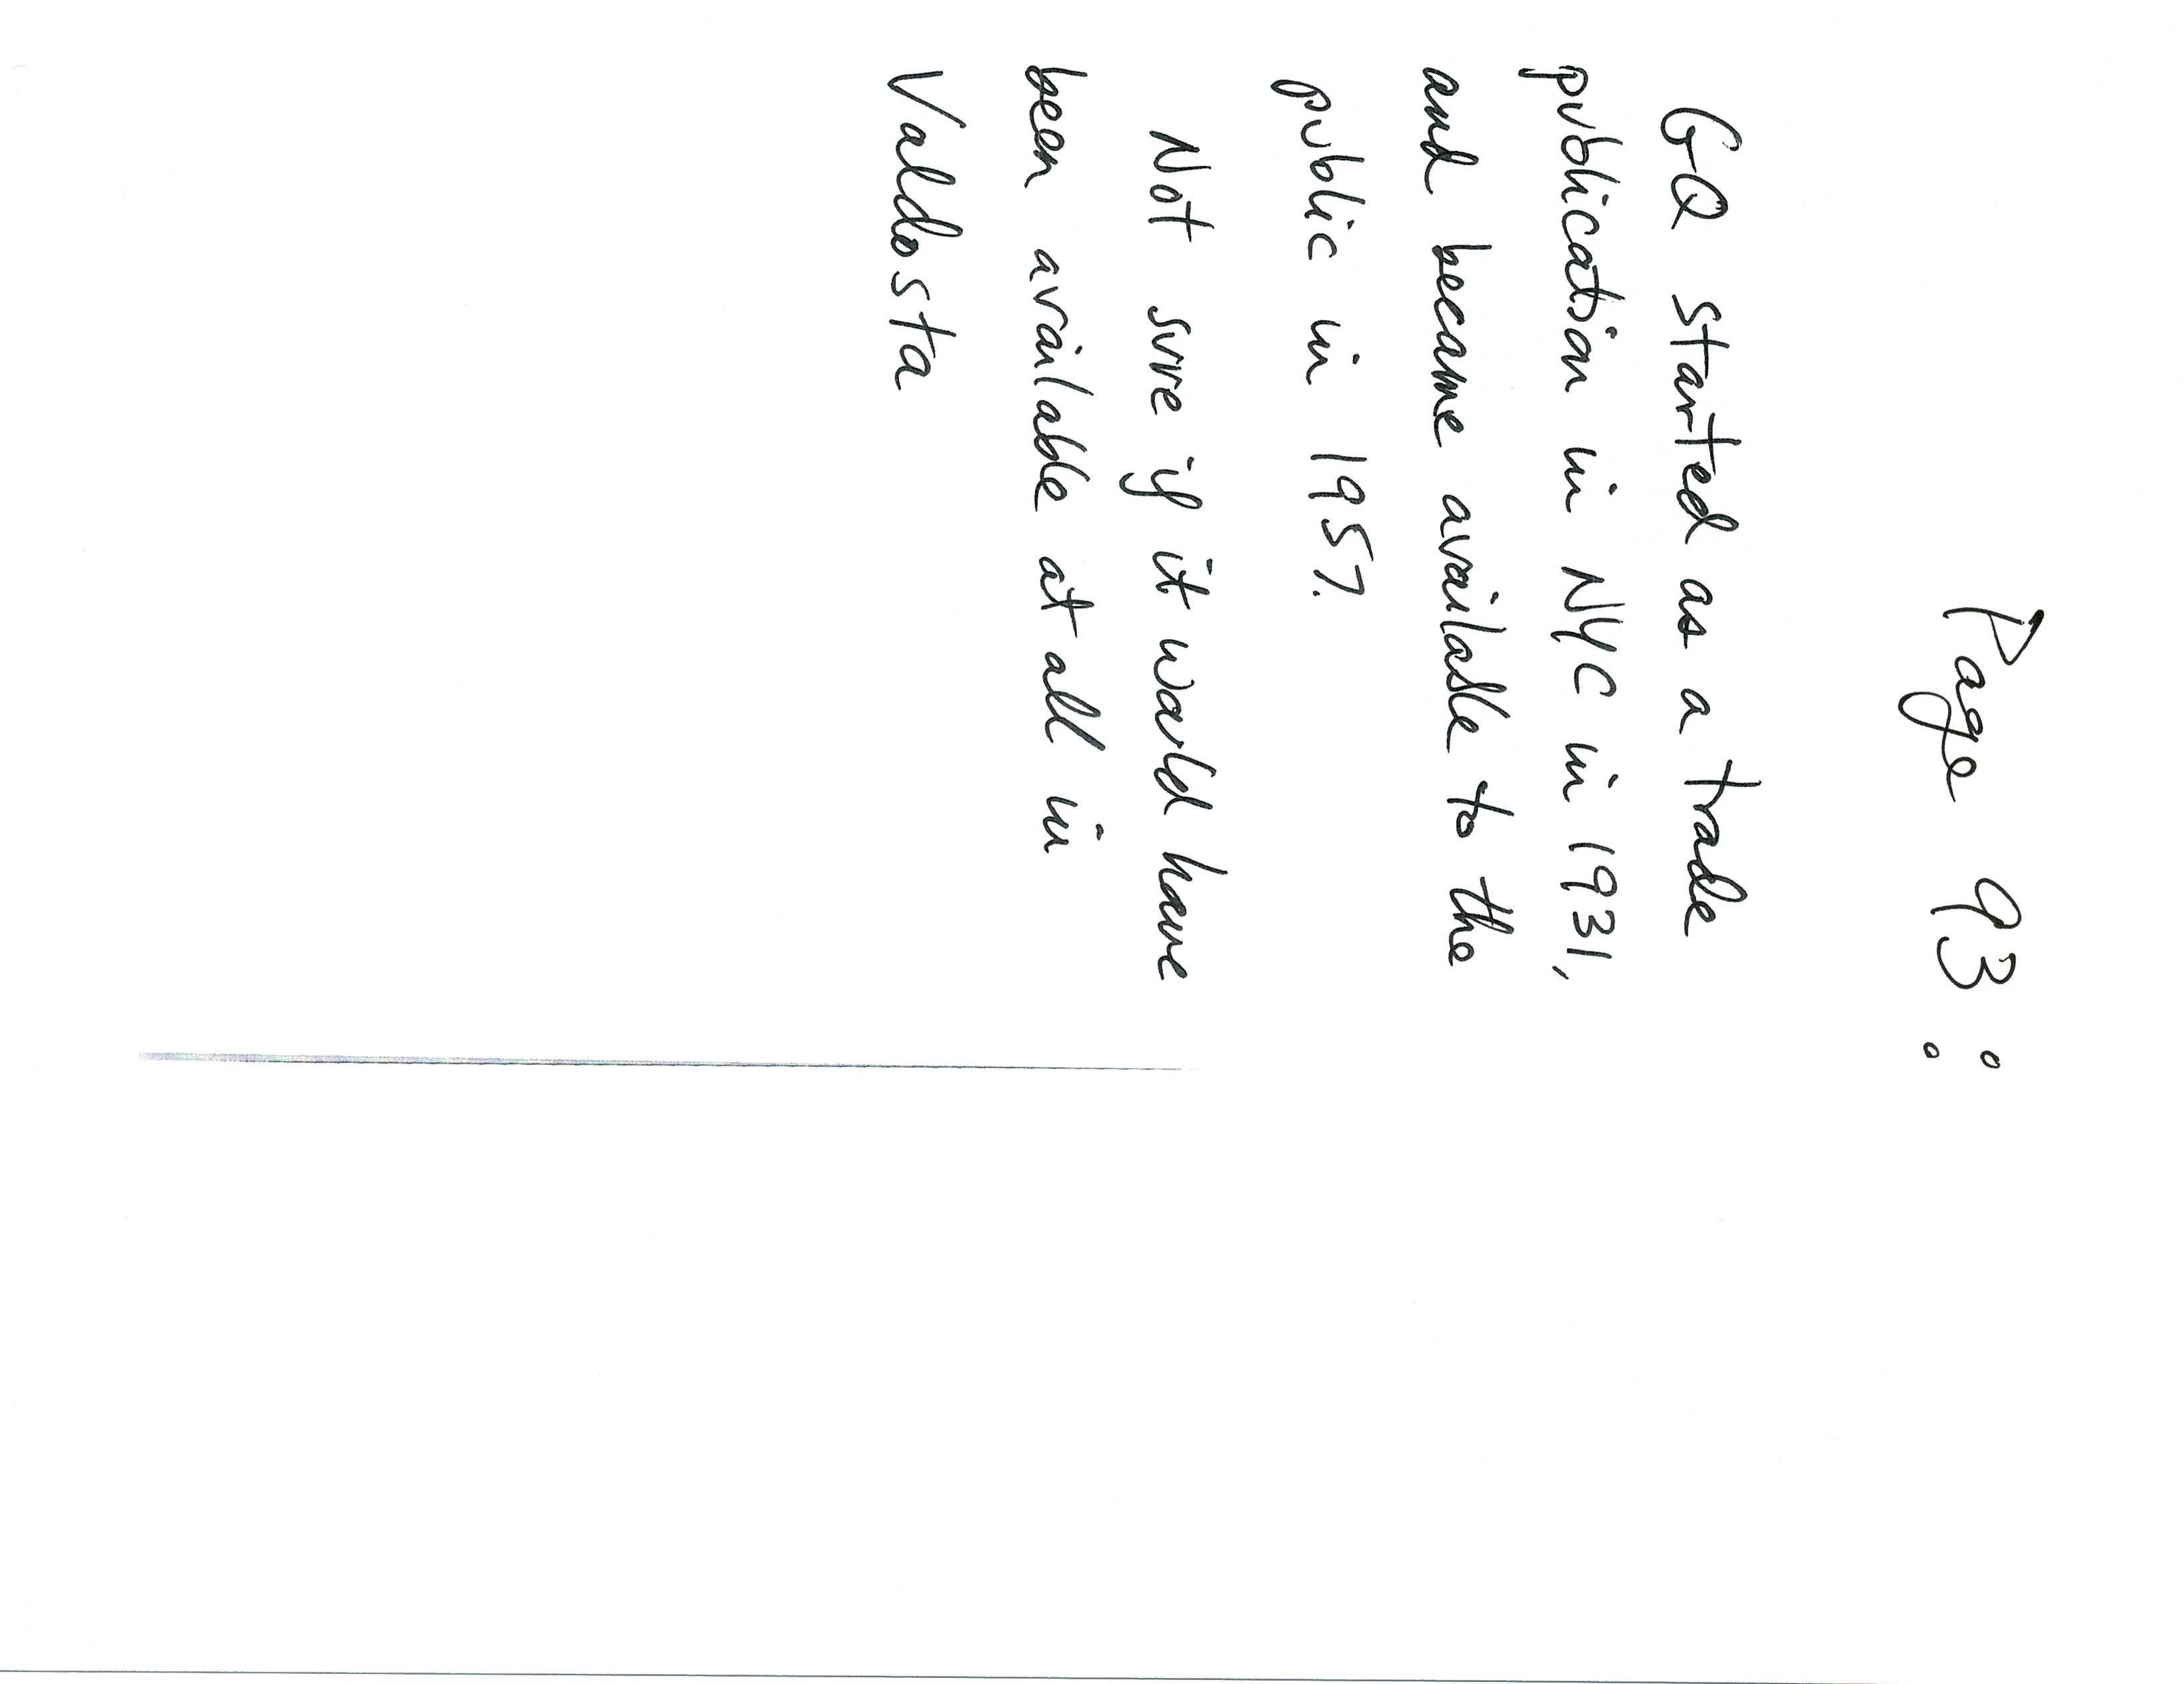 Page 93:
GQ started as a trade
publication in NYC in 1931,
and became available to the
public in 1957.
Not sure if it would have
been available at all in
Valdosta